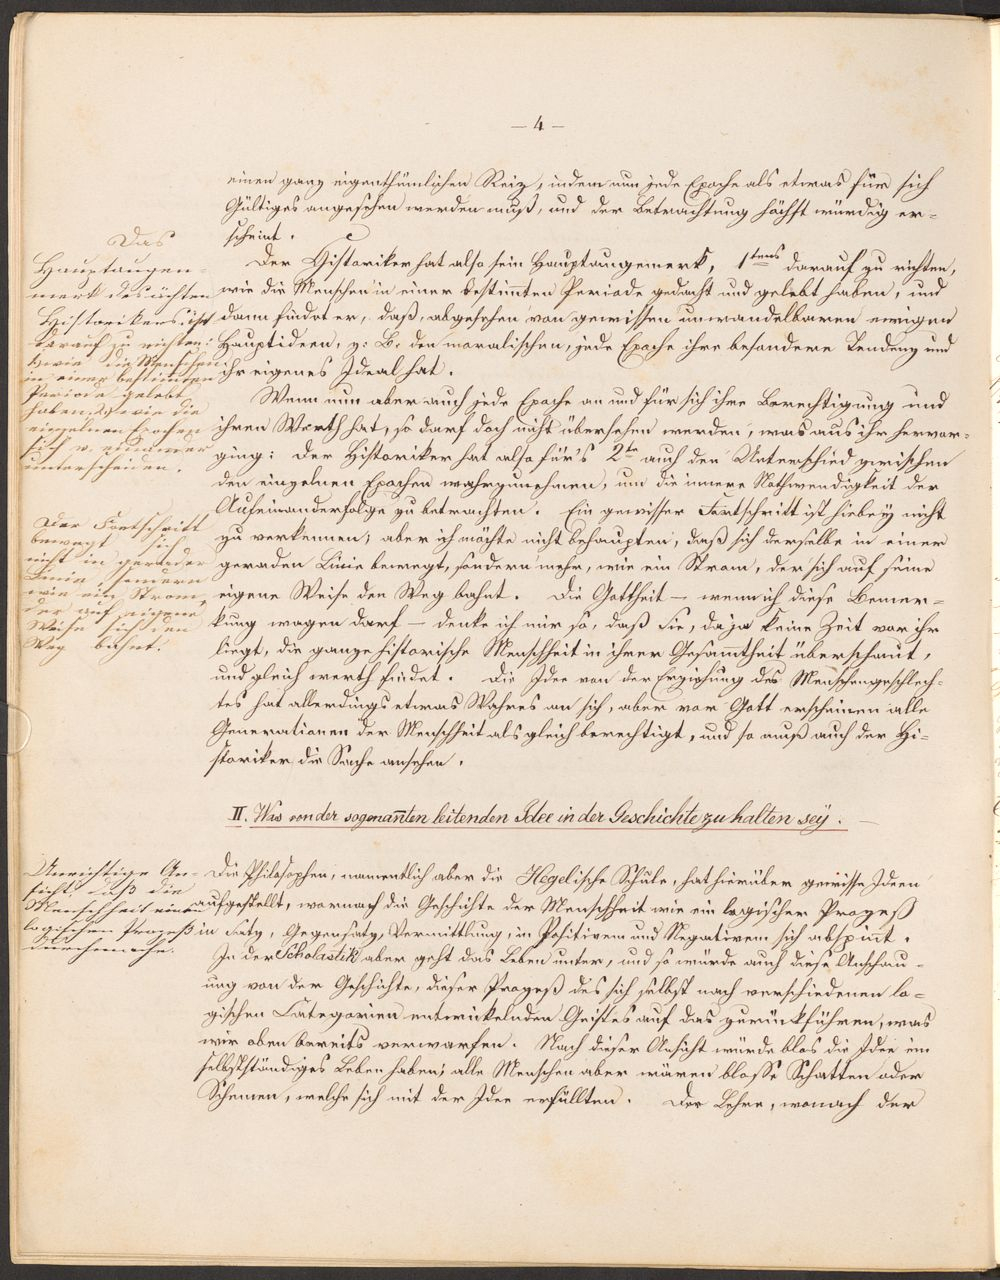 — 4 —
einen ganz eigenthümlichen Reiz, indem nun jede Epoche als etwas für sich
Gültiges angesehen werden muß, und der Betrachtung höchst würdig er-
scheint.
Der Historiker hat also sein Hauptaugenmerk, 1tens darauf zu richten,
wie die Menschen in einer bestimmten Periode gedacht und gelebt haben, und
dann findet er, daß, abgesehen von gewissen unwandelbaren ewigen
Hauptideen, z. B. den moralischen, jede Epoche ihre besondere Tendenz und
ihr eigenes Ideal hat.
Wenn nun aber auch jede Epoche an und für sich ihre Berechtigung und
ihren Werth hat, so darf doch nicht übersehen werden, was aus ihr hervor-
ging: der Historiker hat also für's 2te auch den Unterschied zwischen
den einzelnen Epochen wahrzunehmen, um die innere Nothwendigkeit der
Aufeinanderfolge zu betrachten. Ein gewisser Fortschritt ist hiebey nicht
zu verkennen; aber ich möchte nicht behaupten, daß sich derselbe in einer
geraden Linie bewegt, sondern mehr, wie ein Strom, der sich auf seine
eigene Weise den Weg bahnt. Die Gottheit — wenn ich diese Bemer-
kung wagen darf — denke ich mir so, daß sie, da ja keine Zeit vor ihr
liegt, die ganze historische Menschheit in ihrer Gesammtheit überschaut,
und gleich werth findet. Die Idee von der Erziehung des Menschengeschlech-
tes hat allerdings etwas Wahres an sich, aber vor Gott erscheinen alle
Generationen der Menschheit als gleichberechtigt, und so muß auch der Hi-
storiker die Sache ansehen.
Das
Hauptaugen-
merk des ächten
Historikers ist
darauf zu richten:
1) wie die Menschen
in einer bestimmten
Periode gelebt
haben, 2) wie die
einzelnen Epochen
sich v. einander
unterscheiden.
Der Fortschritt
bewegt sich
nicht in gerader
Linie, sondern
wie ein Strom,
der auf eigene
Weise sich den
Weg bahnt.
II. Was von der sogenan̄ten leitenden Idee in der Geschichte zu halten sey. —
Die Philosophen, namentlich aber die Hegelische Schule, hat hierüber gewisse Ideen
aufgestellt, wornach die Geschichte der Menschheit wie ein logischer Prozeß
in Satz, Gegensatz, Vermittlung, in Positivem und Negativem sich abspin̄t.
In der Scholastik aber geht das Leben unter, und so würde auch diese Anschau-
ung von der Geschichte, dieser Prozeß des sich selbst nach verschiedenen lo-
gischen Categorien entwickelnden Geistes auf das zurückführen, was
wir oben bereits verwarfen. Nach dieser Ansicht würde blos die Idee ein
selbstständiges Leben haben; alle Menschen aber wären blosse Schatten oder
Schemen, welche sich mit der Idee erfüllten. Der Lehre, wonach der
Unrichtige An-
sicht, daß die
Menschheit einen
logischen Prozeß
durchmache.